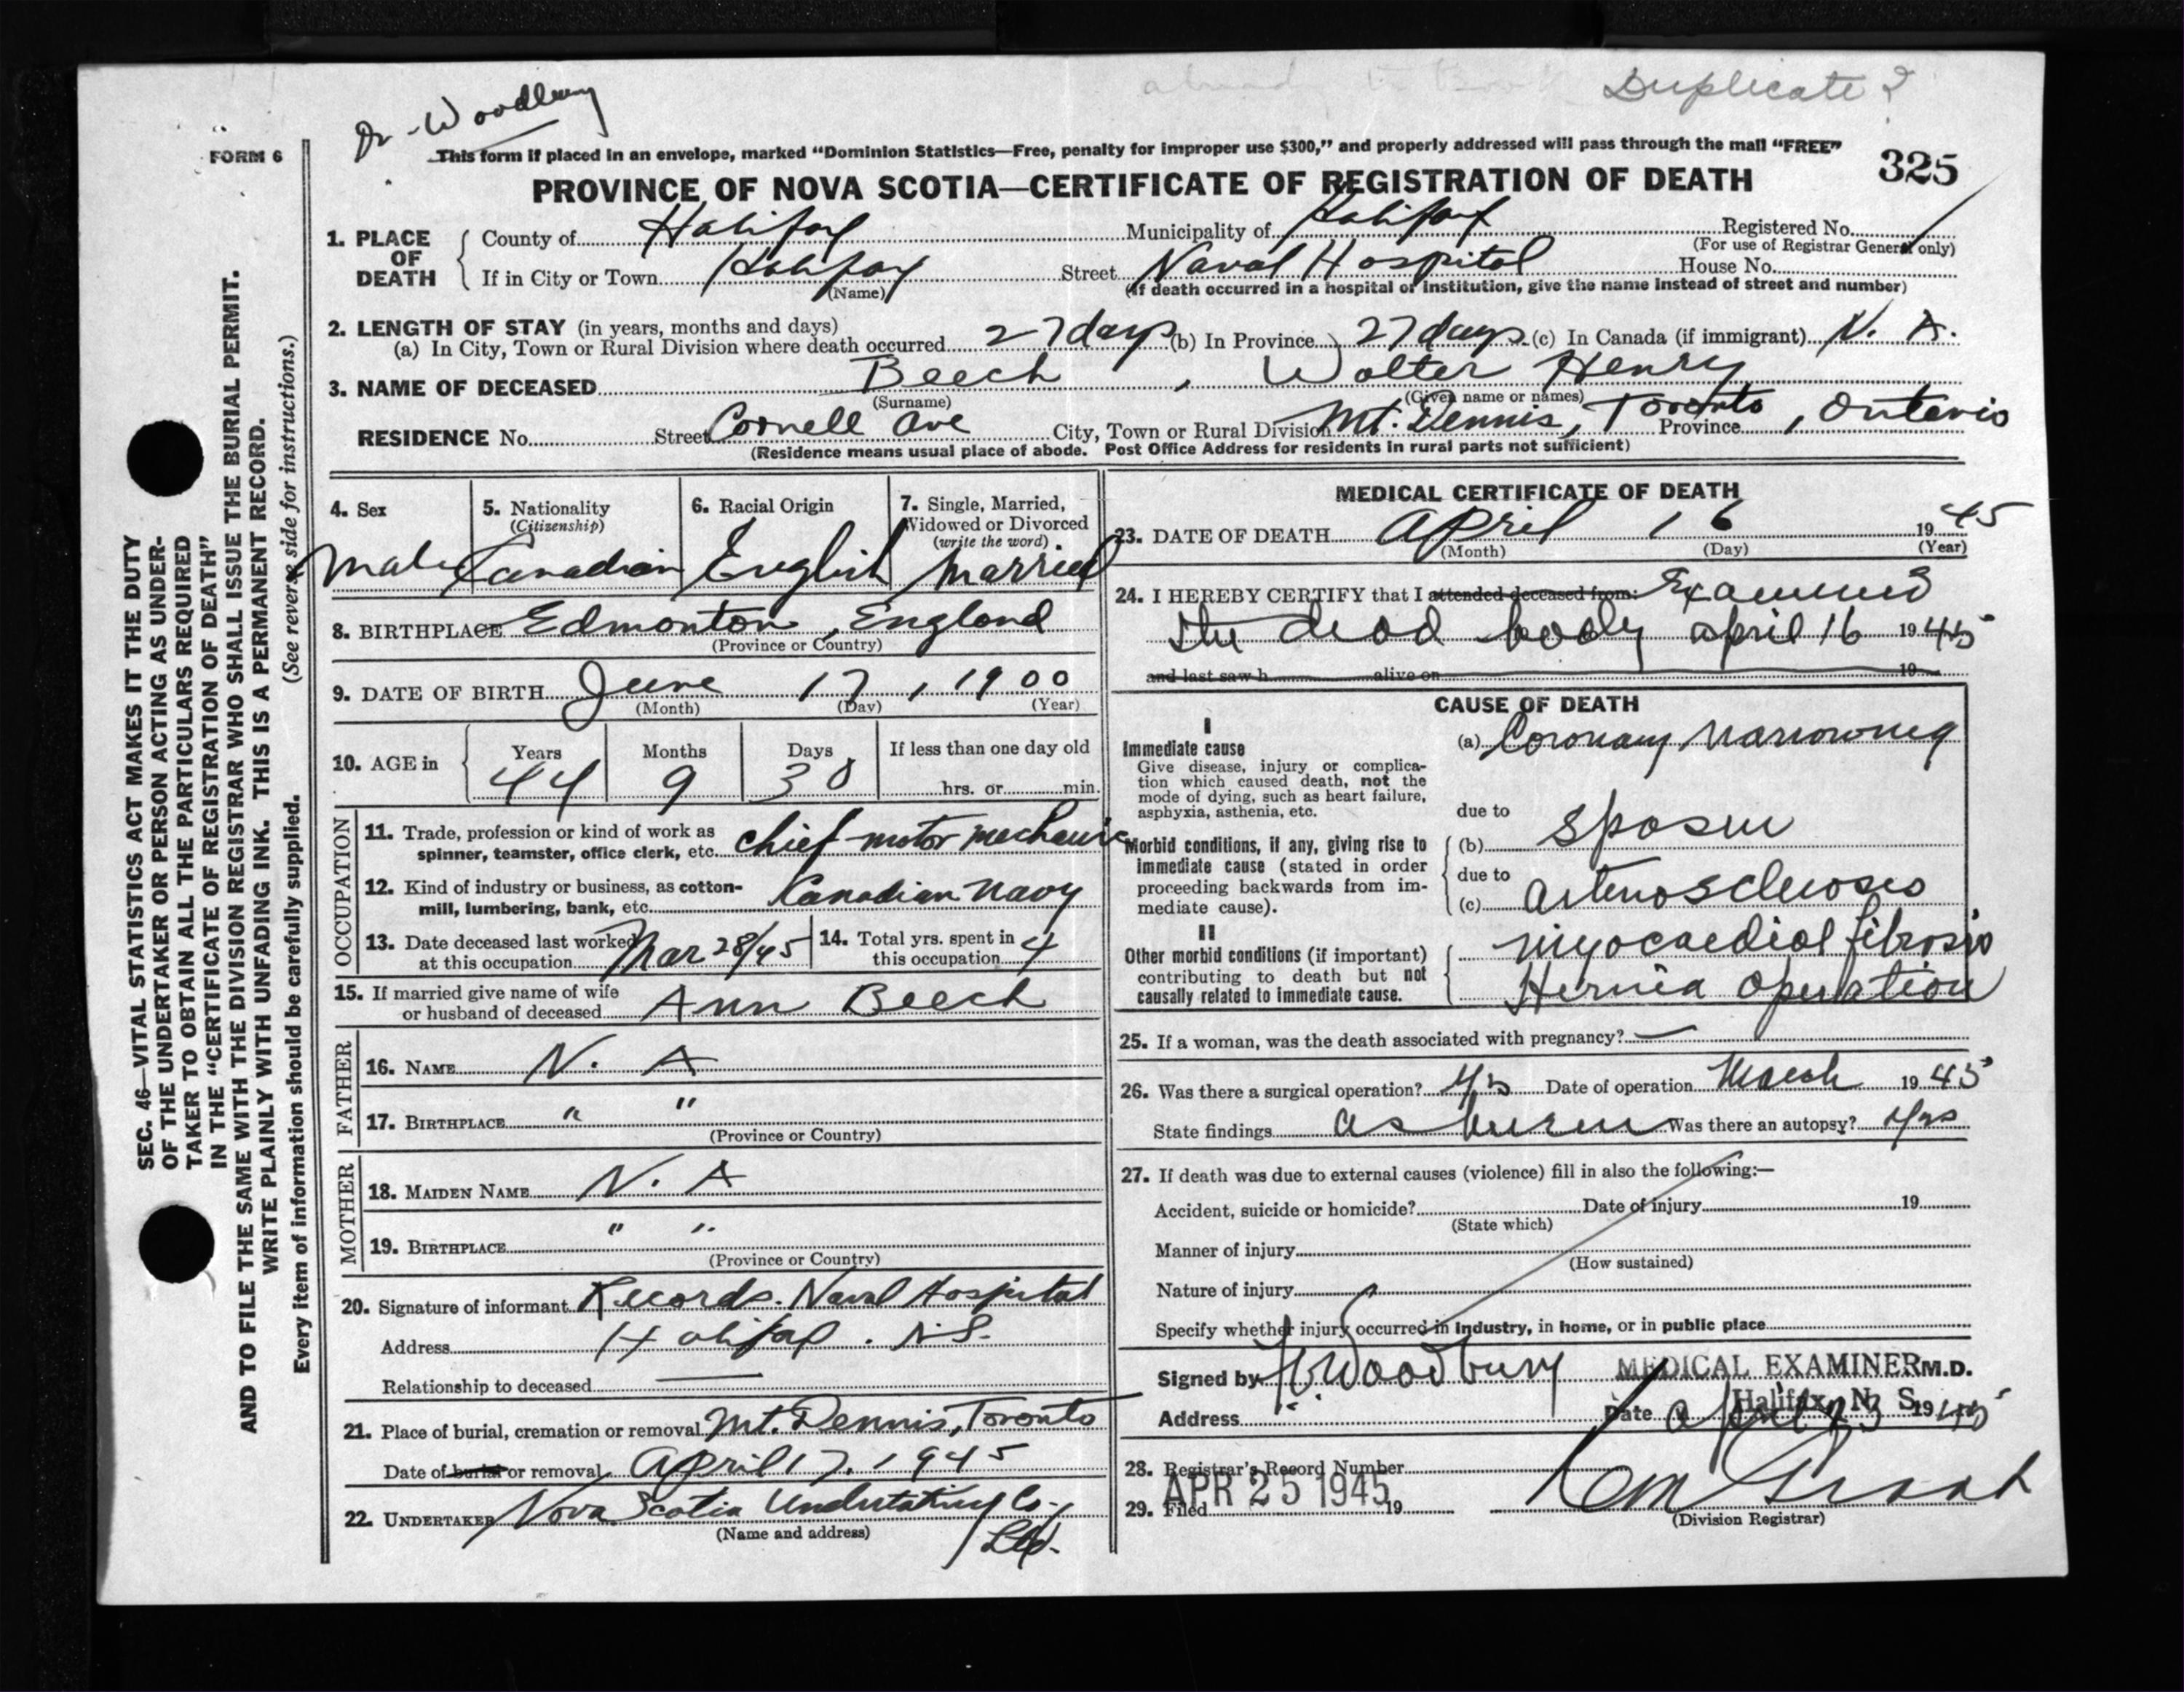 Dr. Woodbury
Duplicate ?
FORM 6
This form if placed in an envelope, marked “Dominion Statistics—Free, penalty for improper use $300,” and properly addressed will pass through the mail “FREE”
325
PROVINCE OF NOVA SCOTIA—CERTIFICATE OF REGISTRATION OF DEATH
1. PLACE OF DEATH
County of Halifax Municipality of Halifax Registered No.
(For use of Registrar General only)
If in City or Town Halifax Street Naval Hospital House No.
(Name) (If death occurred in a hospital or institution, give the name instead of street and number)
2. LENGTH OF STAY (in years, months and days)
(a) In City, Town or Rural Division where death occurred 27 days (b) In Province 27 days (c) In Canada (if immigrant) N. A.
3. NAME OF DECEASED Beech , Walter Henry
(Surname) (Given name or names)
RESIDENCE No. Street Cornell Ave City, Town or Rural Division Mt. Dennis, Toronto Province , Ontario
(Residence means usual place of abode. Post Office Address for residents in rural parts not sufficient)
4. Sex
Male
5. Nationality
(Citizenship)
Canadian
6. Racial Origin
English
7. Single, Married,
Widowed or Divorced
(write the word)
Married
8. BIRTHPLACE Edmonton, England
(Province or Country)
9. DATE OF BIRTH June 17, 1900
(Month) (Day) (Year)
10. AGE in
Years Months Days If less than one day old
44 9 30 hrs. or min.
OCCUPATION
11. Trade, profession or kind of work as
spinner, teamster, office clerk, etc. Chief motor mechanic
12. Kind of industry or business, as cotton-
mill, lumbering, bank, etc. Canadian Navy
13. Date deceased last worked
at this occupation Mar 28/45
14. Total yrs. spent in
this occupation 4
15. If married give name of wife
or husband of deceased Ann Beech
FATHER
16. NAME N. A
17. BIRTHPLACE " "
(Province or Country)
MOTHER
18. MAIDEN NAME N. A
19. BIRTHPLACE " "
(Province or Country)
20. Signature of informant Records. Naval Hospital
Address Halifax. N.S.
Relationship to deceased —
21. Place of burial, cremation or removal Mt. Dennis, Toronto
Date of burial or removal April 17, 1945
22. UNDERTAKER Nova Scotia Undertaking Co.,
(Name and address) Ltd.
MEDICAL CERTIFICATE OF DEATH
23. DATE OF DEATH April 16 1945
(Month) (Day) (Year)
24. I HEREBY CERTIFY that I attended deceased from: Examined
the dead body April 16 1945
and last saw h alive on 19
CAUSE OF DEATH
I
Immediate cause
Give disease, injury or complica-
tion which caused death, not the
mode of dying, such as heart failure,
asphyxia, asthenia, etc.
(a) Coronary narrowing
due to
Morbid conditions, if any, giving rise to
immediate cause (stated in order
proceeding backwards from im-
mediate cause).
(b) spasm
due to
(c) arteriosclerosis
II
Other morbid conditions (if important)
contributing to death but not
causally related to immediate cause.
myocardial fibrosis
Hernia operation
25. If a woman, was the death associated with pregnancy? —
26. Was there a surgical operation? Yes Date of operation March 1945
State findings as Was there an autopsy? Yes
27. If death was due to external causes (violence) fill in also the following:—
Accident, suicide or homicide? Date of injury 19
(State which)
Manner of injury
(How sustained)
Nature of injury
Specify whether injury occurred in industry, in home, or in public place
Signed by Woodbury MEDICAL EXAMINER M.D.
Halifax, N. S.
Address Date April 1945
28. Registrar's Record Number
29. Filed APR 25 1945 19
(Division Registrar)
SEC. 46—VITAL STATISTICS ACT MAKES IT THE DUTY
OF THE UNDERTAKER OR PERSON ACTING AS UNDER-
TAKER TO OBTAIN ALL THE PARTICULARS REQUIRED
IN THE “CERTIFICATE OF REGISTRATION OF DEATH”
AND TO FILE THE SAME WITH THE DIVISION REGISTRAR WHO SHALL ISSUE THE BURIAL PERMIT.
WRITE PLAINLY WITH UNFADING INK. THIS IS A PERMANENT RECORD.
Every item of information should be carefully supplied. (See reverse side for instructions.)